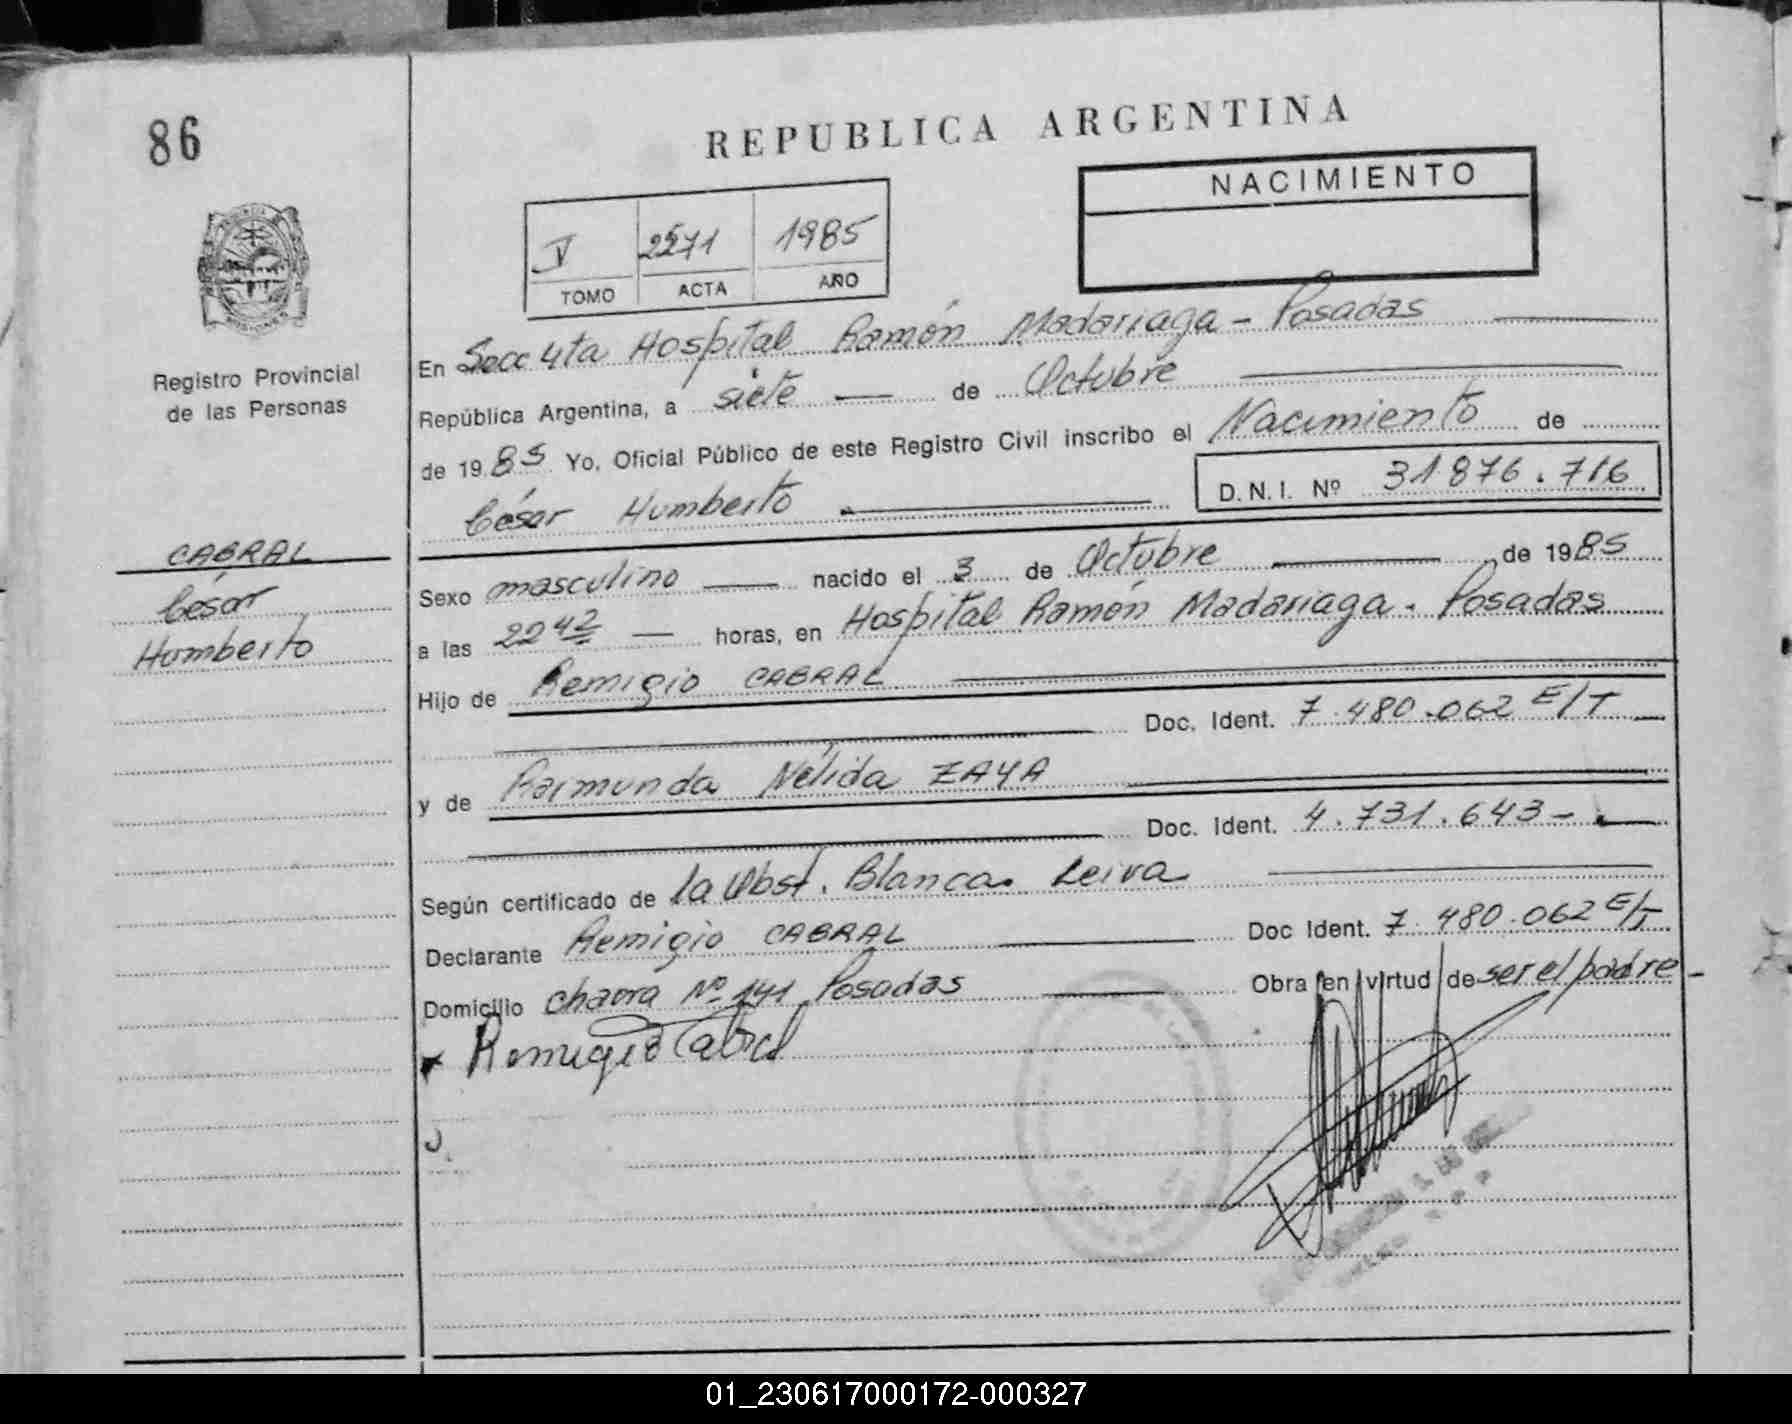 86
REPUBLICA ARGENTINA
NACIMIENTO
V 2271 1985
TOMO ACTA AÑO
Registro Provincial
de las Personas
CABRAL
César
Humberto
En Secc 4ta Hospital Ramón Madariaga - Posadas
República Argentina, a siete de Octubre
de 1985 Yo, Oficial Público de este Registro Civil inscribo el Nacimiento de
César Humberto D.N.I. Nº 31.876.716
Sexo masculino nacido el 3 de Octubre de 1985
a las 22 42 horas, en Hospital Ramón Madariaga - Posadas
Hijo de Remigio CABRAL
Doc. Ident. 7.480.062 E/T
y de Raimunda Nélida ZAYA
Doc. Ident. 4.731.643-
Según certificado de la Obst. Blanca Leiva
Declarante Remigio CABRAL Doc Ident. 7.480.062 E/T
Domicilio chacra Nº 141 Posadas Obra en virtud de ser el padre -
Remigio Cabral
01_230617000172-000327